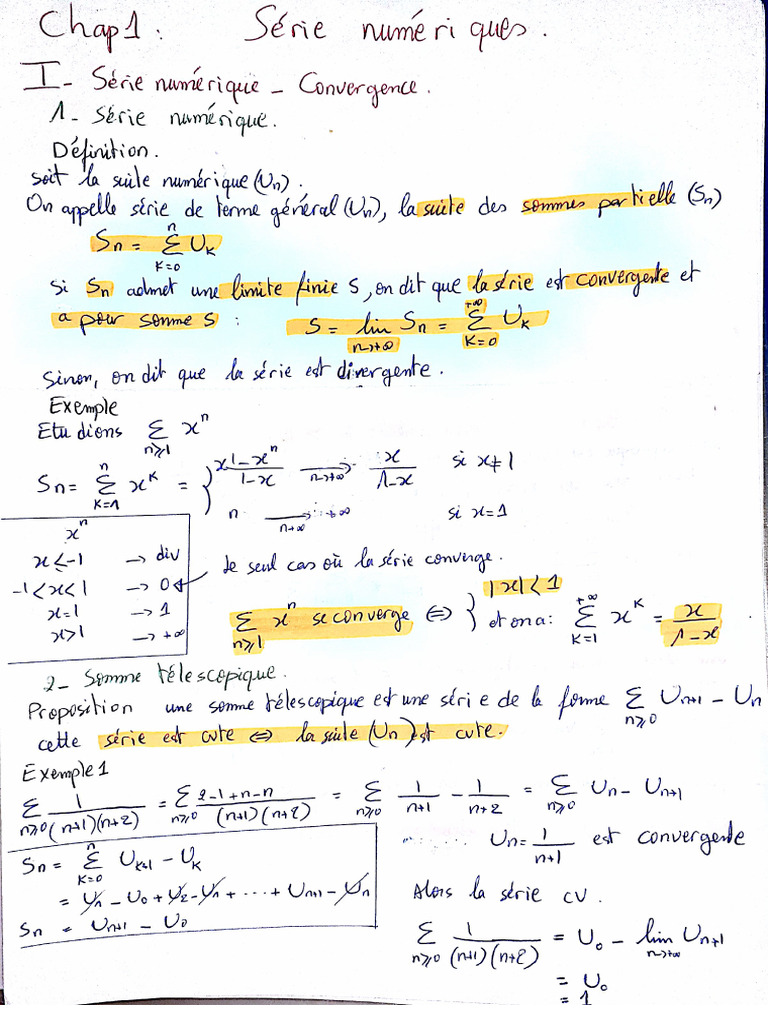 Chap1: Série numériques.
I- Série numérique - Convergence.
1- Série numérique.
Définition.
soit la suite numérique (Un).
On appelle série de terme général (Un), la suite des sommes partielle (Sn)
Sn = Σ_{K=0}^{n} U_K
Si Sn admet une limite finie S, on dit que la série est convergente et
a pour somme S : S = lim_{n→+∞} Sn = Σ_{K=0}^{+∞} U_K
Sinon, on dit que la série est divergente.
Exemple
Etudions Σ_{n≥1} x^n
Sn = Σ_{K=1}^{n} x^K = { x (1-x^n)/(1-x) →_{n→+∞} x/(1-x) si x≠1
n →_{n→+∞} +∞ si x=1
x^n
x≤-1 → div
-1<x<1 → 0 ← le seul cas où la série converge.
x=1 → 1
x>1 → +∞
Σ_{n≥1} x^n se converge ⇔ { |x|<1
et on a: Σ_{K=1}^{+∞} x^K = x/(1-x)
2- Somme télescopique.
Proposition une somme télescopique est une série de la forme Σ_{n≥0} U_{n+1} - U_n
cette série est cvte ⇔ la suite (Un) est cvte.
Exemple 1
Σ_{n≥0} 1/((n+1)(n+2)) = Σ_{n≥0} (2-1+n-n)/((n+1)(n+2)) = Σ_{n≥0} 1/(n+1) - 1/(n+2) = Σ_{n≥0} U_n - U_{n+1}
Un = 1/(n+1) est convergente
Sn = Σ_{K=0}^{n} U_{K+1} - U_K
= U_1 - U_0 + U_2 - U_1 + ... + U_{n+1} - U_n
Sn = U_{n+1} - U_0
Alors la série cv.
Σ_{n≥0} 1/((n+1)(n+2)) = U_0 - lim_{n→+∞} U_{n+1}
= U_0
= 1